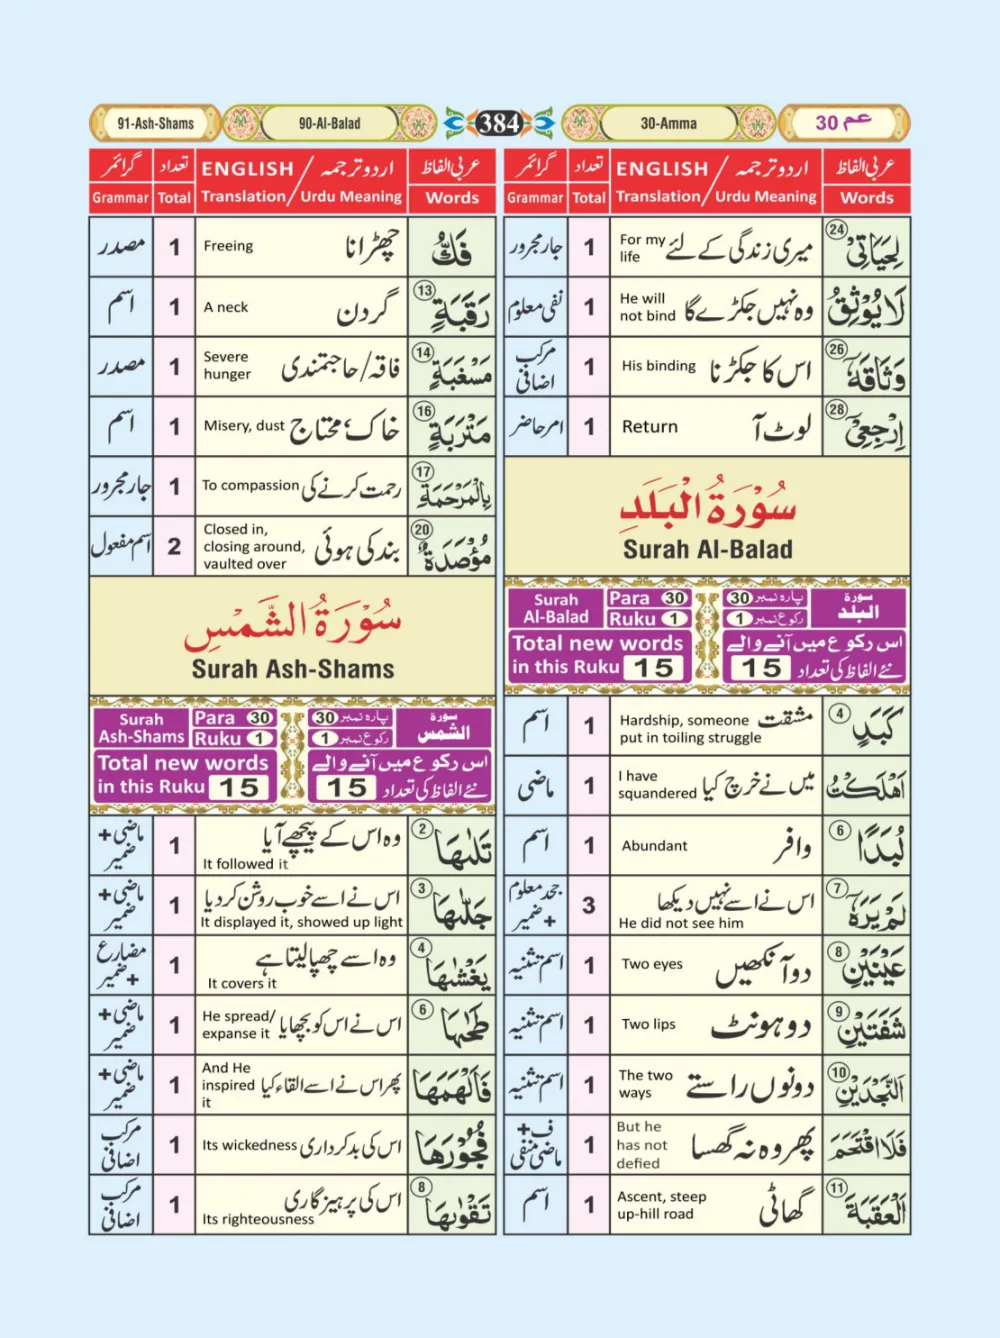 91-Ash-Shams 90-Al-Balad 384 30-Amma عم 30
عربی الفاظ اردو ترجمہ / ENGLISH تعداد گرائمر
Words Urdu Meaning / Translation Total Grammar
لِحَیَاتِیْ 24 میری زندگی کے لئے For my life 1 جار مجرور
لَا یُوْثِقُ وہ نہیں جکڑے گا He will not bind 1 نفی معلوم
وَثَاقَهٗ 26 اس کا جکڑنا His binding 1 مرکب اضافی
اِرْجِعِیْ 28 لوٹ آ Return 1 امر حاضر
سُوْرَةُ الْبَلَدِ
Surah Al-Balad
Surah Al-Balad Para 30 Ruku 1 پارہ نمبر 30 رکوع نمبر 1 سورة البلد
Total new words in this Ruku 15 اس رکوع میں آنے والے نئے الفاظ کی تعداد 15
كَبَدٍ 4 مشقت Hardship, someone put in toiling struggle 1 اسم
اَهْلَكْتُ میں نے خرچ کیا I have squandered 1 ماضی
لُبَدًا 6 وافر Abundant 1 اسم
لَمْ یَرَهٗ 7 اس نے اسے نہیں دیکھا He did not see him 3 جحد معلوم + ضمیر
عَیْنَیْنِ 8 دو آنکھیں Two eyes 1 اسم تثنیہ
شَفَتَیْنِ 9 دو ہونٹ Two lips 1 اسم تثنیہ
النَّجْدَیْنِ 10 دونوں راستے The two ways 1 اسم تثنیہ
فَلَا اقْتَحَمَ پھر وہ نہ گھسا But he has not defied 1 ف + ماضی منفی
الْعَقَبَةَ 11 گھاٹی Ascent, steep up-hill road 1 اسم
عربی الفاظ اردو ترجمہ / ENGLISH تعداد گرائمر
Words Urdu Meaning / Translation Total Grammar
فَكُّ چھڑانا Freeing 1 مصدر
رَقَبَةٍ 13 گردن A neck 1 اسم
مَسْغَبَةٍ 14 فاقہ/حاجتمندی Severe hunger 1 مصدر
مَتْرَبَةٍ 16 خاک، محتاج Misery, dust 1 اسم
بِالْمَرْحَمَةِ 17 رحمت کرنے کی To compassion 1 جار مجرور
مُؤْصَدَةٌ 20 بند کی ہوئی Closed in, closing around, vaulted over 2 اسم مفعول
سُوْرَةُ الشَّمْسِ
Surah Ash-Shams
Surah Ash-Shams Para 30 Ruku 1 پارہ نمبر 30 رکوع نمبر 1 سورة الشمس
Total new words in this Ruku 15 اس رکوع میں آنے والے نئے الفاظ کی تعداد 15
تَلٰىهَا 2 وہ اس کے پیچھے آیا It followed it 1 ماضی + ضمیر
جَلّٰىهَا 3 اس نے اسے خوب روشن کر دیا It displayed it, showed up light 1 ماضی + ضمیر
یَغْشٰىهَا 4 وہ اسے چھپا لیتا ہے It covers it 1 مضارع + ضمیر
طَحٰىهَا 6 اس نے اس کو بچھایا He spread/ expanse it 1 ماضی + ضمیر
فَاَلْهَمَهَا پھر اس نے اسے القاء کیا And He inspired it 1 ماضی + ضمیر
فُجُوْرَهَا اس کی بدکرداری Its wickedness 1 مرکب اضافی
تَقْوٰىهَا 8 اس کی پرہیزگاری Its righteousness 1 مرکب اضافی